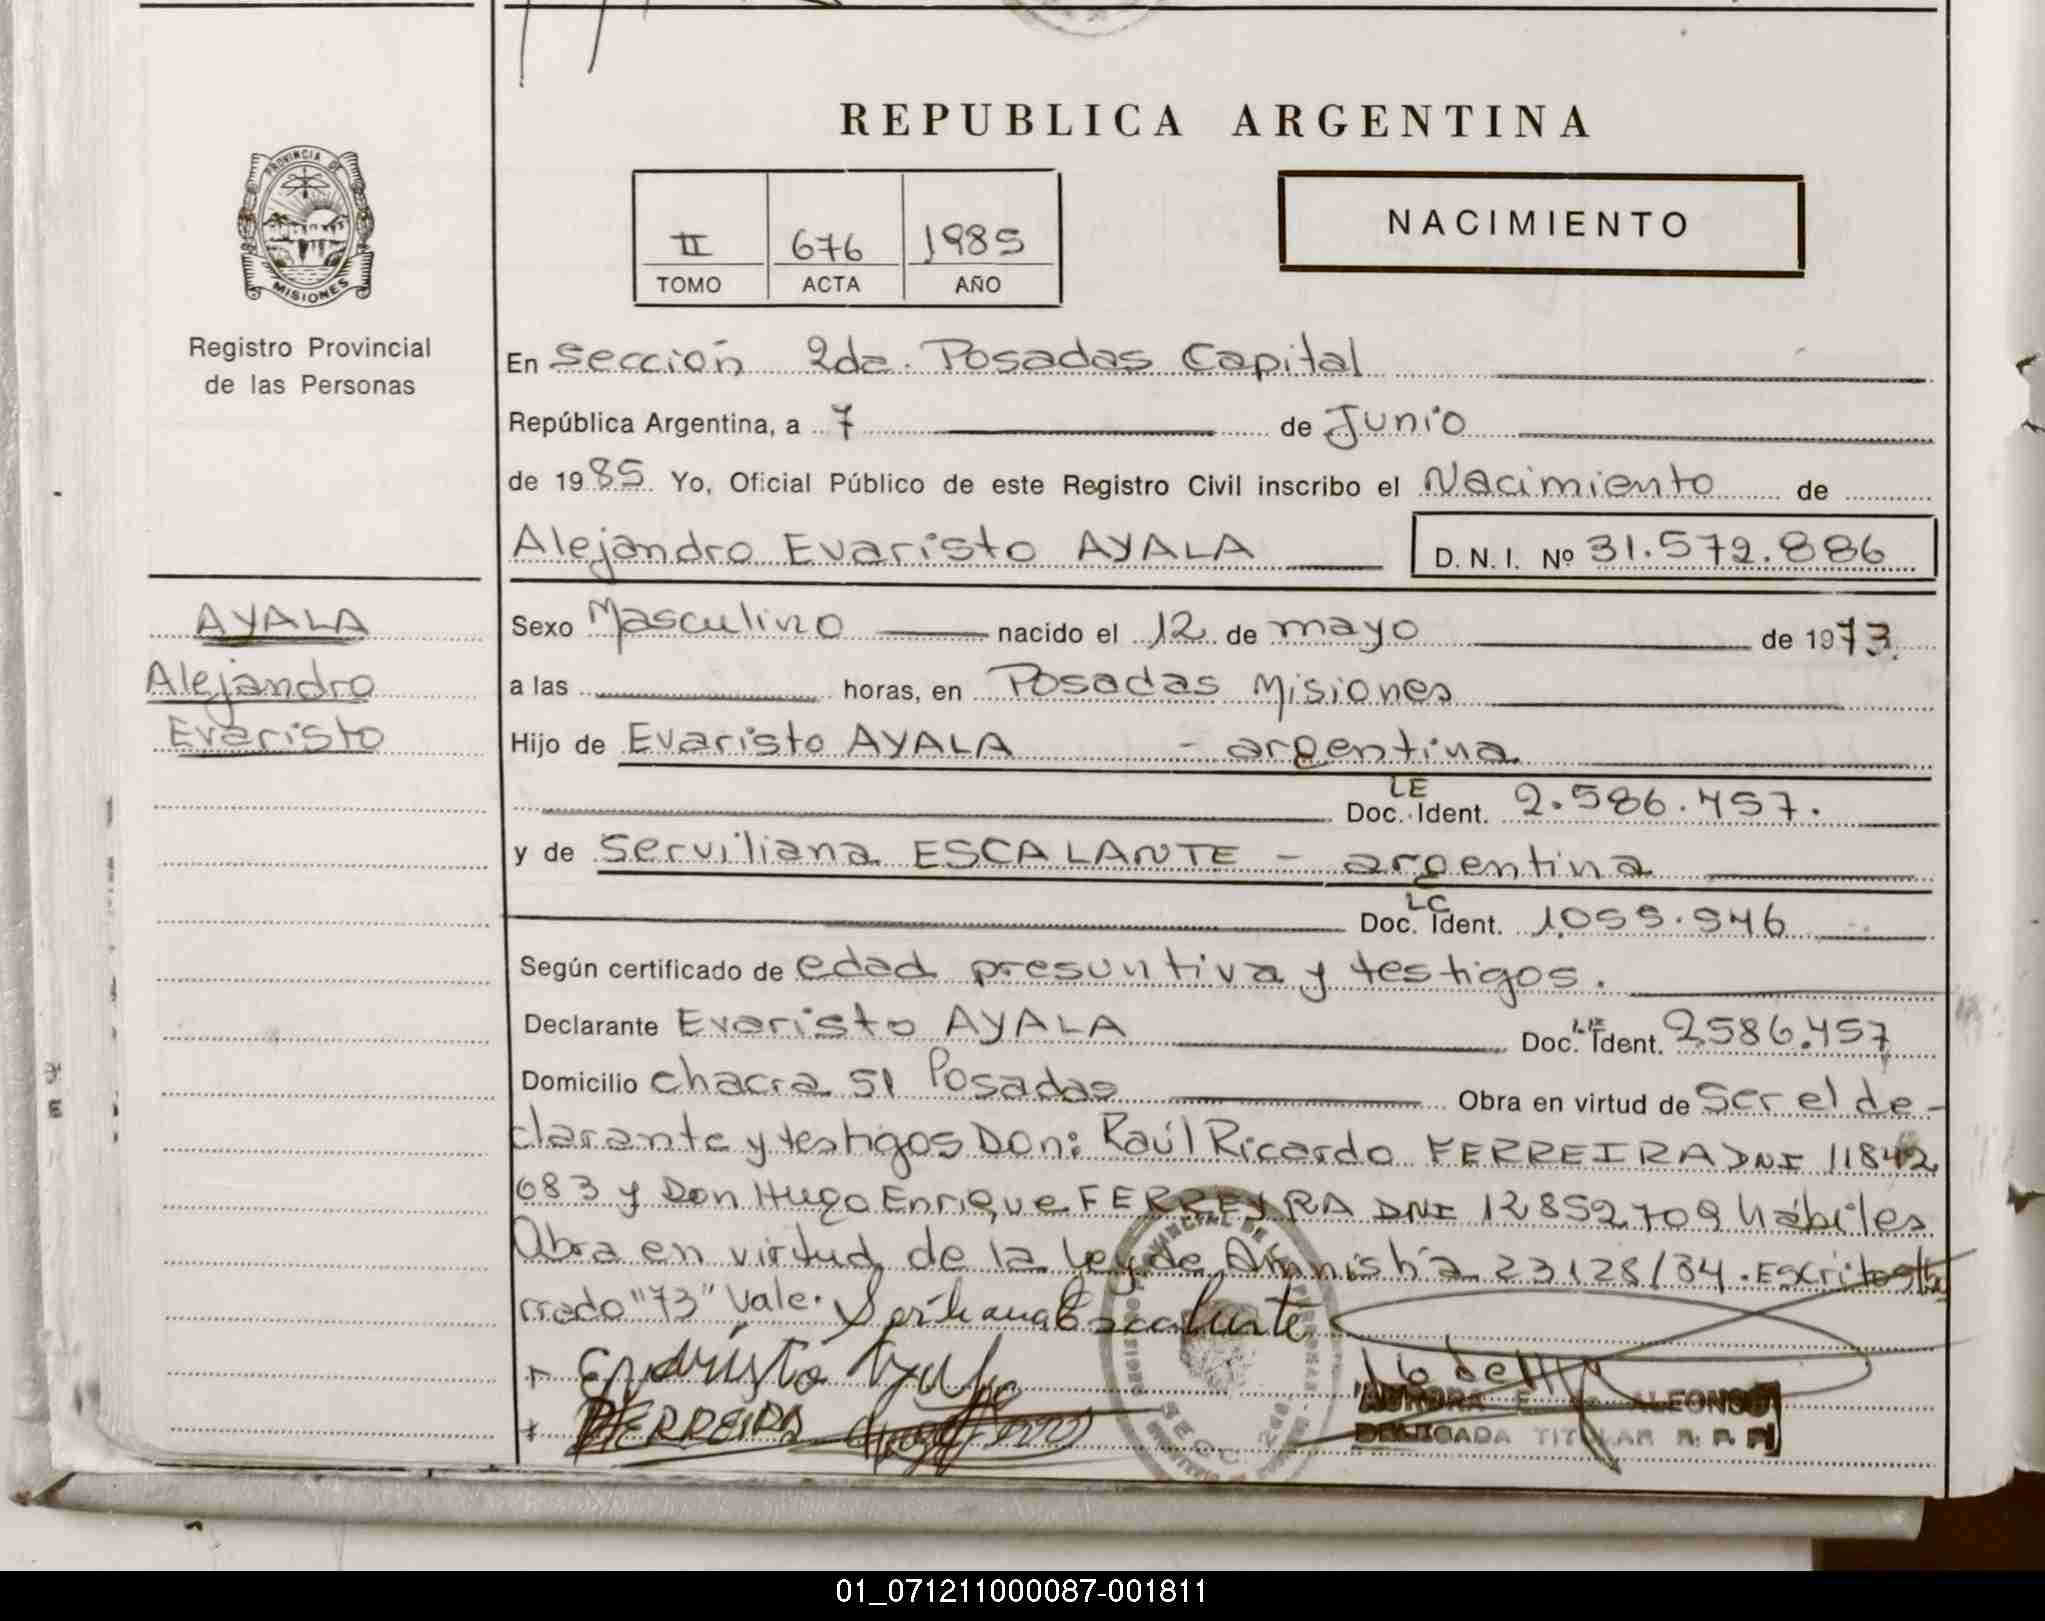 REPUBLICA ARGENTINA
PROVINCIA DE
MISIONES
Registro Provincial
de las Personas
II 676 1985
TOMO ACTA AÑO
NACIMIENTO
En Sección 2da. Posadas Capital
República Argentina, a 7 de Junio
de 1985 Yo, Oficial Público de este Registro Civil inscribo el Nacimiento de
Alejandro Evaristo AYALA D. N. I. Nº 31.572.886
AYALA
Alejandro
Evaristo
Sexo Masculino nacido el 12 de mayo de 1973.
a las horas, en Posadas Misiones
Hijo de Evaristo AYALA - argentina
LE
Doc. Ident. 2.586.457.
y de Serviliana ESCALANTE - argentina
LC
Doc. Ident. 1059.946
Según certificado de edad presuntiva y testigos.
Declarante Evaristo AYALA Doc. Ident. 2586.457
Domicilio chacra 51 Posadas Obra en virtud de Ser el de-
clarante y testigos Don: Raúl Ricardo FERREIRA DNI 11842
683 y Don Hugo Enrique FERREYRA DNI 12852709 hábiles
Obra en virtud de la Ley de Amnistía 23128/84. Escrito
rrado "73" Vale. Escalante
Ayala
FERREIRA
AURORA E. de ALFONSO
DELEGADA TITULAR R. P. P.
01_071211000087-001811